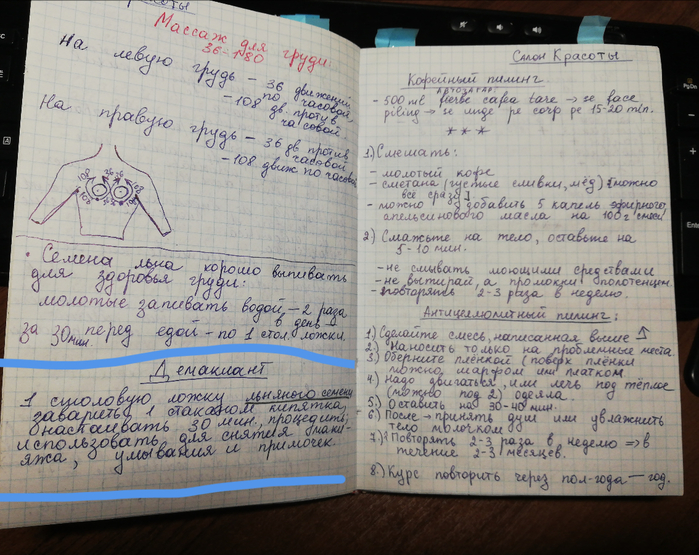 Массаж для груди
36-180
На левую грудь – 36 движений
по часовой,
– 108 дв. против
часовой.
На правую грудь – 36 дв против
часовой
– 108 движ по часовой
108
36
36
108
• Семена льна хорошо выпивать
для здоровья груди:
молотые запивать водой – 2 раза
в день
за 30 мин. перед едой – по 1 стол. ложки.
Демакиант
1 столовую ложку льняного семени
заварить 1 стаканом кипятка,
настаивать 30 мин., процедить,
использовать для снятия маки-
яжа, умывания и примочек
Салон Красоты
Кофейный пилинг.
АВТОЗАГАР
- 500 ml fierbe cafea tare → se face
piling → se unge pe corp pe 15-20 min.
* * *
1.) Смешать:
- молотый кофе
- сметана (густые сливки, мёд) [можно
всё сразу]
- можно добавить 5 капель эфирного
апельсинового масла на 100 г смеси
2) Смажьте на тело, оставьте на
5-10 мин.
- не смывать моющими средствами
- не вытирай, а промокни полотенцем.
- повторять 2-3 раза в неделю.
Антицеллюлитный пилинг:
1.) Сделайте смесь, написанная выше ↑
2.) Наносить только на проблемные места.
3.) Оберните плёнкой (поверх плёнки
можно, шарфом или платком
4.) Надо двигаться, или лечь под тёплое
(можно под 2) одеяла.
5.) Оставить на 30-40 мин.
6.) После → принять душ или увлажнить
тело молочком
7.) Повторять 2-3 раза в неделю => в
течение 2-3 месяцев.
8.) Курс повторить через пол-года — год.